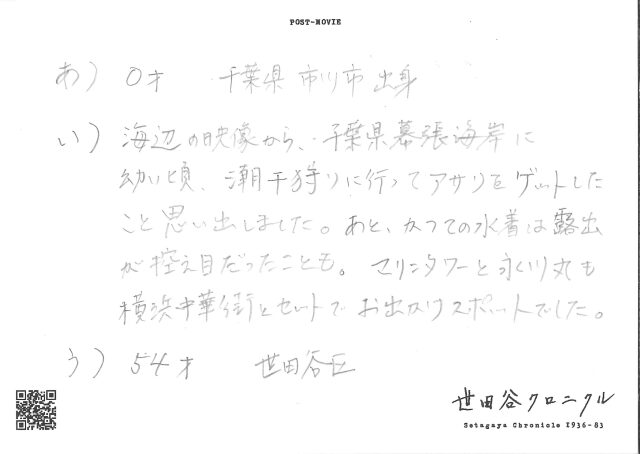 POST-MOVIE
あ) 0才 千葉県 市川市 出身
い) 海辺の映像から、千葉県幕張海岸に
幼い頃、潮干狩りに行ってアサリをゲットした
こと思い出しました。あと、かつての水着は露出
が控え目だったことも。マリンタワーと氷川丸も
横浜中華街とセットでお出かけスポットでした。
う) 54才 世田谷区
世田谷クロニクル
Setagaya Chronicle 1936-83